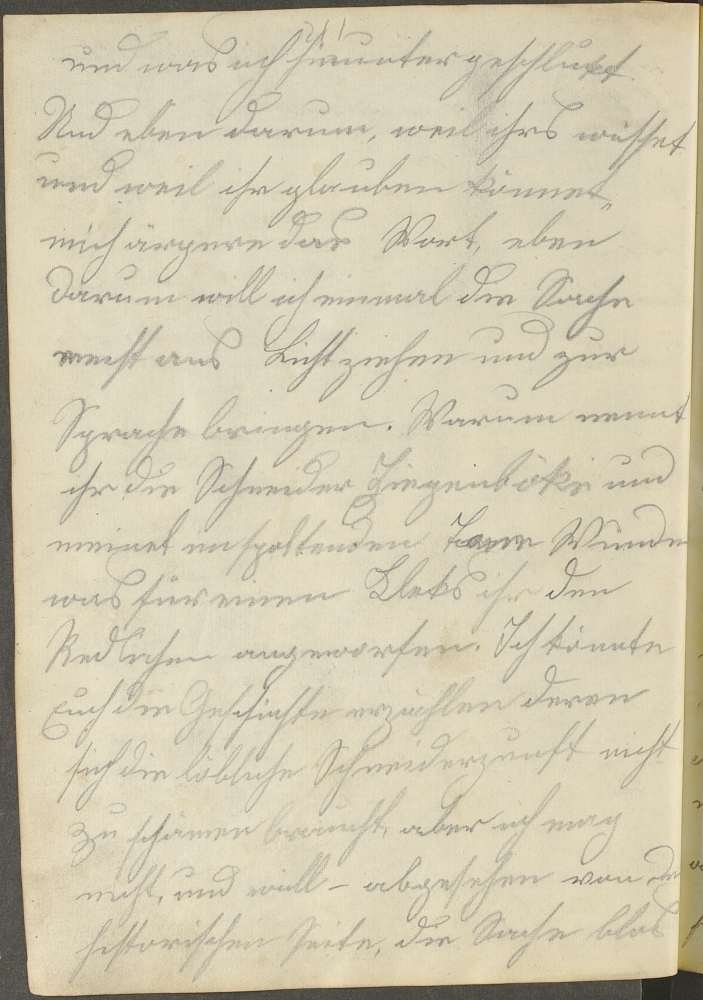 und was ich hinuntergeschluckt.
Und eben darum, weil ihrs wisset
und weil ihr glauben könnet,
mich ärgere das Wort, eben
darum will ich einmal die Sache
recht ans Licht ziehen und zur
Sprache bringen. Warum nennt
ihr die Schneider Ziegenböke und
meinet im spottenden Tone Wunder
was für einen Kleks ihr den
Redlichen angeworfen. Ich könnte
Euch die Geschichte erzählen deren
sich die löbliche Schneiderzunft nicht
zu schämen braucht, aber ich mag
nicht, und will – abgesehen von der
historischen Seite, die Sache blos